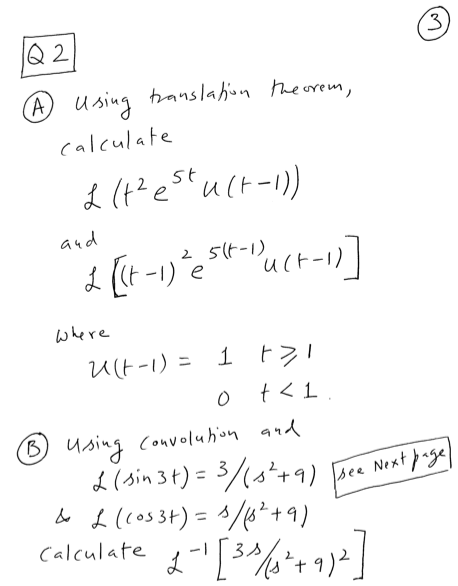 ③
Q2
Ⓐ Using translation theorem,
calculate
ℒ(t² e^{5t} u(t-1))
and
ℒ[(t-1)² e^{5(t-1)} u(t-1)]
where
u(t-1) = 1 t ≥ 1
0 t < 1.
Ⓑ Using convolution and
ℒ(sin 3t) = 3/(s²+9) see Next page
& ℒ(cos 3t) = s/(s²+9)
Calculate ℒ⁻¹[3s/(s²+9)²]